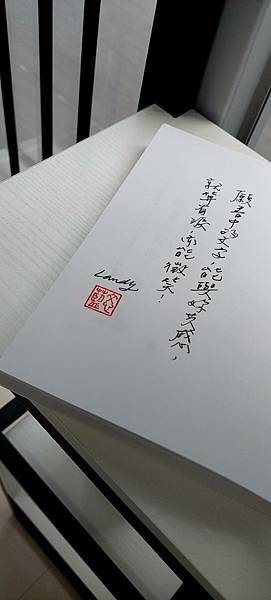 願書中的文字,能與妳共感,
就算有淚,亦能微笑!
Landy